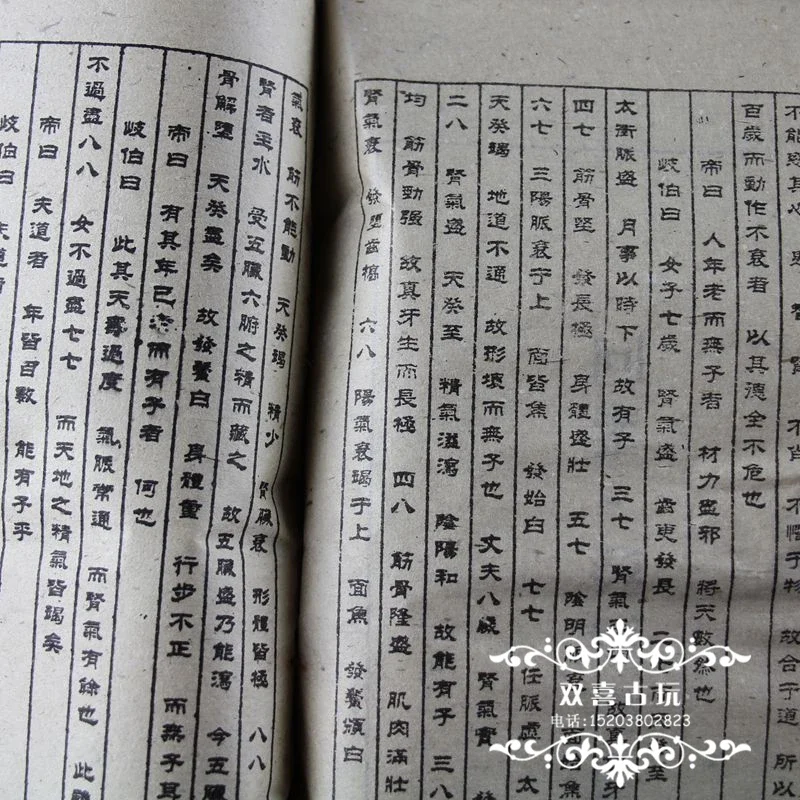 不能惑其心 愚 智 賢 不肖 不懼于物 故合于道 所以
百歲而動作不衰者 以其德全不危也
帝曰 人年老而無子者 材力盡邪 將天數然也
岐伯曰 女子七歲 腎氣盛 齒更發長 二七而 至
太衝脈盛 月事以時下 故有子 三七 腎氣 故真牙
四七 筋骨堅 發長極 身體盛壯 五七 陰明 面
六七 三陽脈衰于上 面皆焦 發始白 七七 任脈虛 太
天癸竭 地道不通 故形壞而無子也 丈夫八歲 腎氣實
二八 腎氣盛 天癸至 精氣溢瀉 陰陽和 故能有子 三八
均 筋骨勁强 故真牙生而長極 四八 筋骨隆盛 肌肉滿壯
腎氣衰 發墮齒槁 六八 陽氣衰竭于上 面焦 發鬢頒白
氣衰 筋不能動 天癸竭 精少 腎臟衰 形體皆極 八八
腎者主水 受五臟六腑之精而藏之 故五臟盛乃能瀉 今五臟
骨解墮 天癸盡矣 故發鬢白 身體重 行步不正 而無子其
帝曰 有其年已老而有子者 何也
岐伯曰 此其天壽過度 氣脈常通 而腎氣有餘也 此雖
不過盡八八 女不過盡七七 而天地之精氣皆竭矣
帝曰 夫道者 年皆百數 能有子乎
岐伯曰 夫道者
双喜古玩
电话:15203802823